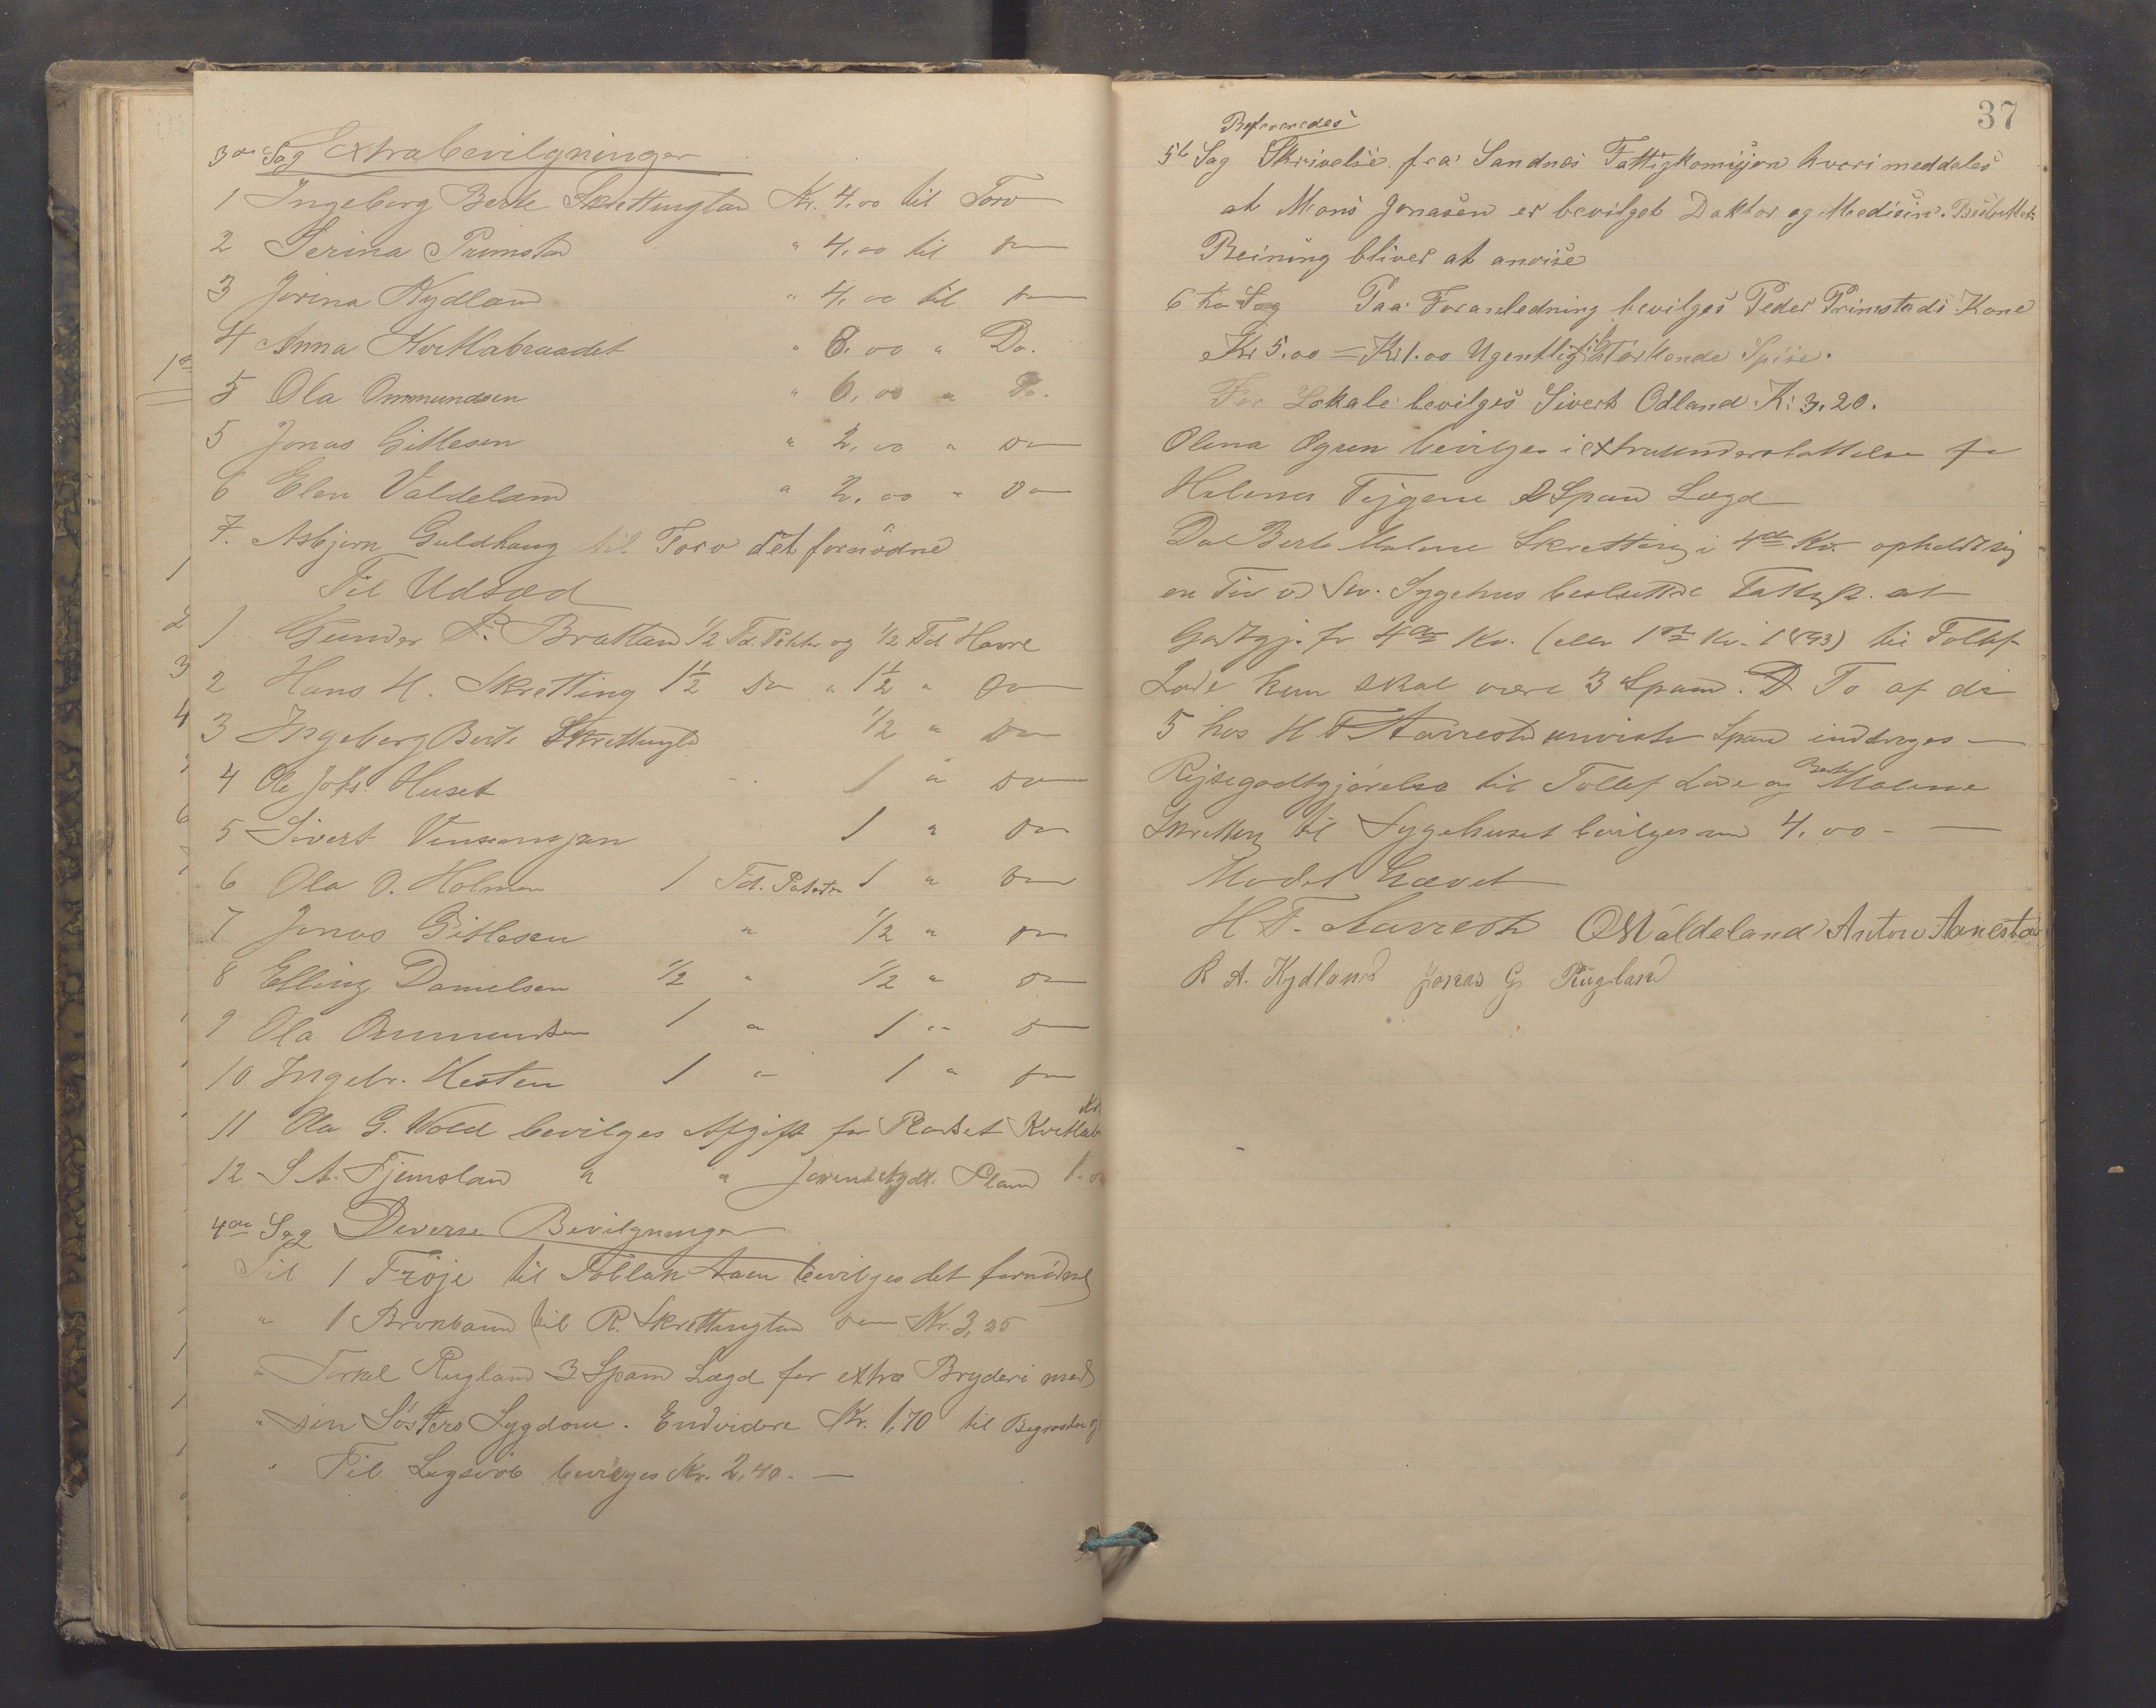 3die Sag Extrabevilgninger
1 Ingeborg Berte Skrettingland Kr. 4.00 til Torv
2 Serina Primstad " 4,00 til Do
3 Jorina Kydland " 4,00 til Do
4 Anna Kvitlabraadet " 8,00 " Do.
5 Ola Ommundsen " 6,00 " Do.
5 Jonas Gitlesen " 2,00 " Do
6 Elen Valdeland " 2,00 " Do
7. Asbjørn Guldhaug til Torv det fornödne
Til Udsæd
1 Gunder P. Brattland 1/2 Td. og 1/2 Td Havre
2 Hans H. Skretting 1 1/2 Do " 1 1/2 " Do
3 Ingeborg Berte Skrettingld 1/2 " Do
4 Ole Johs. Huset 1 " Do
5 Sivert 1 " Do
6 Ola O. Holmen 1 Td. Poteter 1 " Do
7 Jonas Gitlesen " 1/2 " Do
8 Elling Danielsen 1/2 " 1/2 " Do
9 Ola Ommundsen 1 " 1 " Do
10 Ingebr. Hesten 1 " 1 " Do
11 Ola G. Wold bevilges Afgift for Pladset
12 S A. Fjermsland " "
4de Sag Diverse Bevilgninger
Til 1 Trøje til Tollak Aaen bevilges det fornödne
" 1 Brokband til R. Skrettingland Do Kr. 3,25
" Torkel Rugland 3 Spand Lægd for extra Bryderi med
" sin Sösters Sygdom. Endvidere Kr. 1,70 til
" Til Ligsvöb bevilges Kr. 2,40. —
37
Refereredes
5te Sag Skrivelse fra Sandnes Fattigkomisjon hvori meddeles
at Mons Jonasen er bevilget Doktor og Medisin. Besluttet:
Reining bliver at anvise
6te Sag Paa Foranledning bevilges Peder Primstads Kone
Kr 5.00 = Kr 1.00 Ugentlig til Styrkende Spise.
For Lokale bevilges Sivert Odland Kr 3.20.
Olena Ogren bevilges i extraunderstøttelse for
Helena 2 Spand Lægd
Da Berte Malene Skretting i 4de Kv. opholdt sig
en Tid v Sygehus besluttede Fattigk. at
Godtgj. for 4de Kv. (eller 1ste Kv. 1893) til Tollef
Lode hun skal være 3 Spand. To af de
5 hos H T Aarrestad anviste Spand inddrages —
Rejsegodtgjörelse til Tollef Lode og Berte Malene
Skretting til Sygehuset bevilges med 4,00 — —
Mödet hævet
H T. Aarrestad O Valdeland Anton Aanestad
R A. Kydland Jonas G Rugland